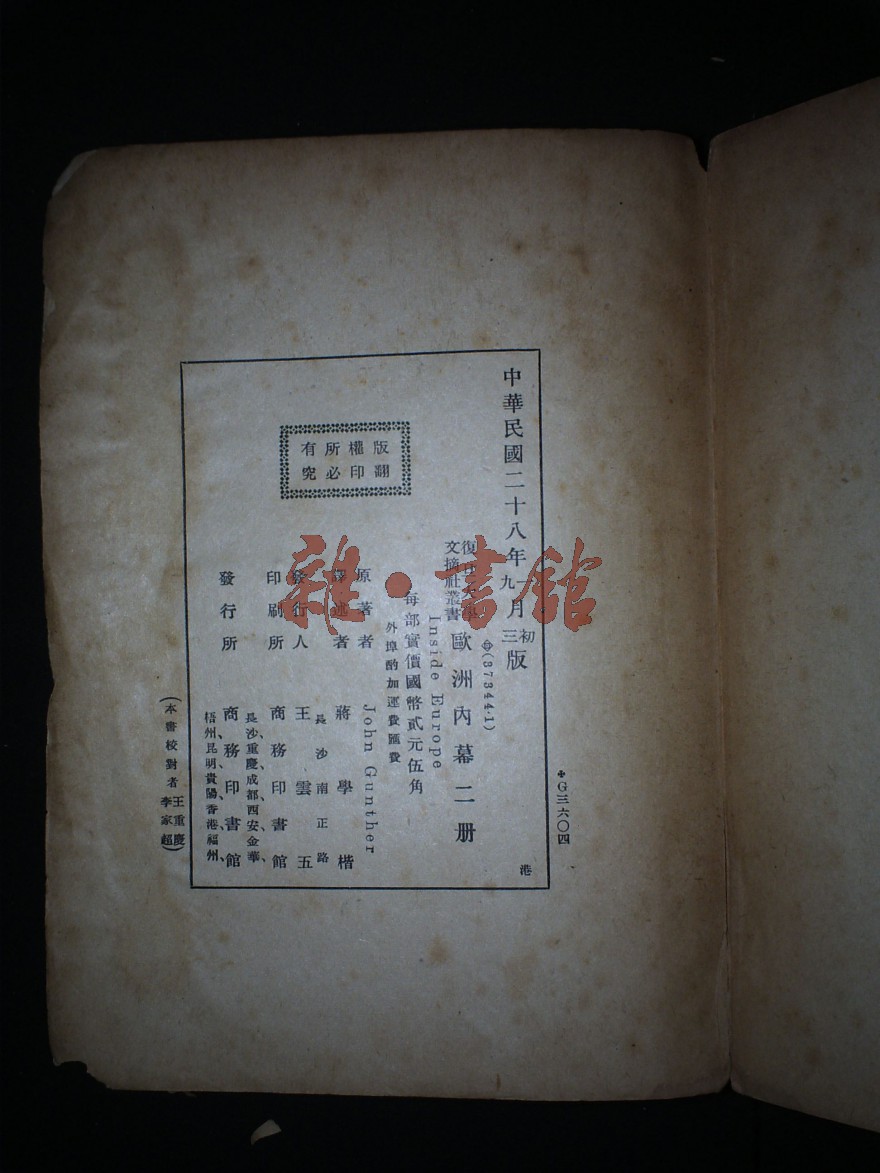 中華民國二十八年一月初版
九 三
⊕(37344·1)
復旦大學
文摘社叢書
歐洲內幕二册
Inside Europe
每部實價國幣貳元伍角
外埠酌加運費匯費
原著者 John Gunther
譯述者 蔣學楷
發行人 王雲五
長沙南正路
印刷所 商務印書館
發行所 商務印書館
長沙、重慶、成都、西安、金華、
梧州、昆明、貴陽、香港、福州、
版權所有
翻印必究
(本書校對者 王重慶
李家超)
G三六〇四
港
雜·書館